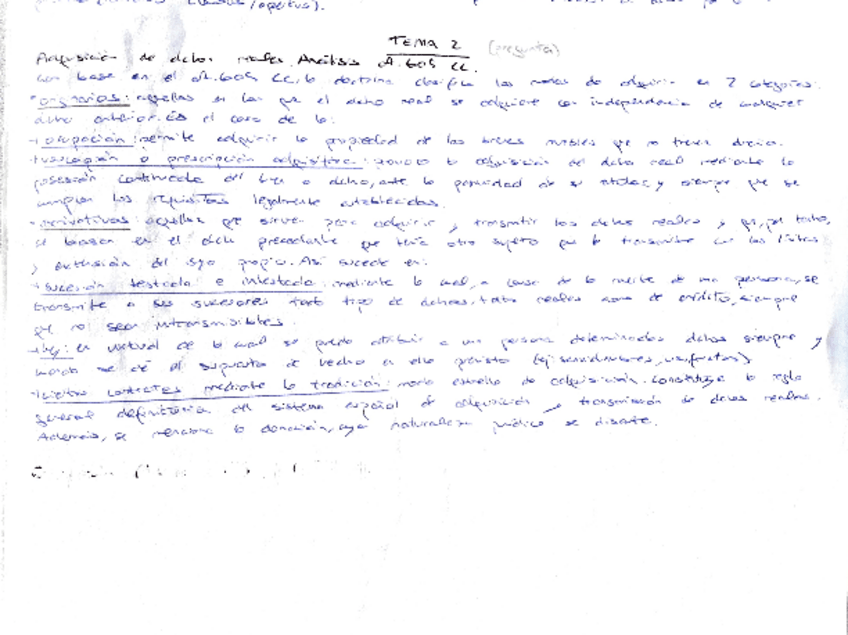 TEMA 2 (pregunta)
Adquisición de dchos reales. Análisis A.609 CC.
Con base en el A.609 CC, la doctrina clasifica los modos de adquirir en 2 categorías:
• originarios: aquellos en los que el dcho real se adquiere con independencia de cualquier
dcho anterior. Es el caso de la:
→ ocupación: permite adquirir la propiedad de los bienes muebles que no tienen dueño.
→ usucapión o prescripción adquisitiva: la adquisición del dcho real mediante la
posesión continuada del bien o dcho, ante la pasividad de su titular, y siempre que se
cumplan los requisitos legalmente establecidos.
• derivativos: aquellos que sirven para adquirir y transmitir los dchos reales y que, por tanto,
se basan en el dcho precedente que tenía otro sujeto que lo transmite con los límites
y extensión del suyo propio. Así sucede en:
→ sucesión testada e intestada: mediante la cual, a causa de la muerte de una persona, se
transmite a sus sucesores todo tipo de dchos, tanto reales como de crédito, siempre
que no sean intransmisibles.
→ ley: en virtud de la cual se puede atribuir a una persona determinados dchos siempre y
cuando se dé el supuesto de hecho en ella previsto (ej: servidumbres, usufructos)
→ ciertos contratos mediante la tradición: modo estrella de adquisición. Constituye la regla
general definitoria del sistema español de adquisición y transmisión de dchos reales.
Además, se menciona la donación, cuya naturaleza jurídica se discute.